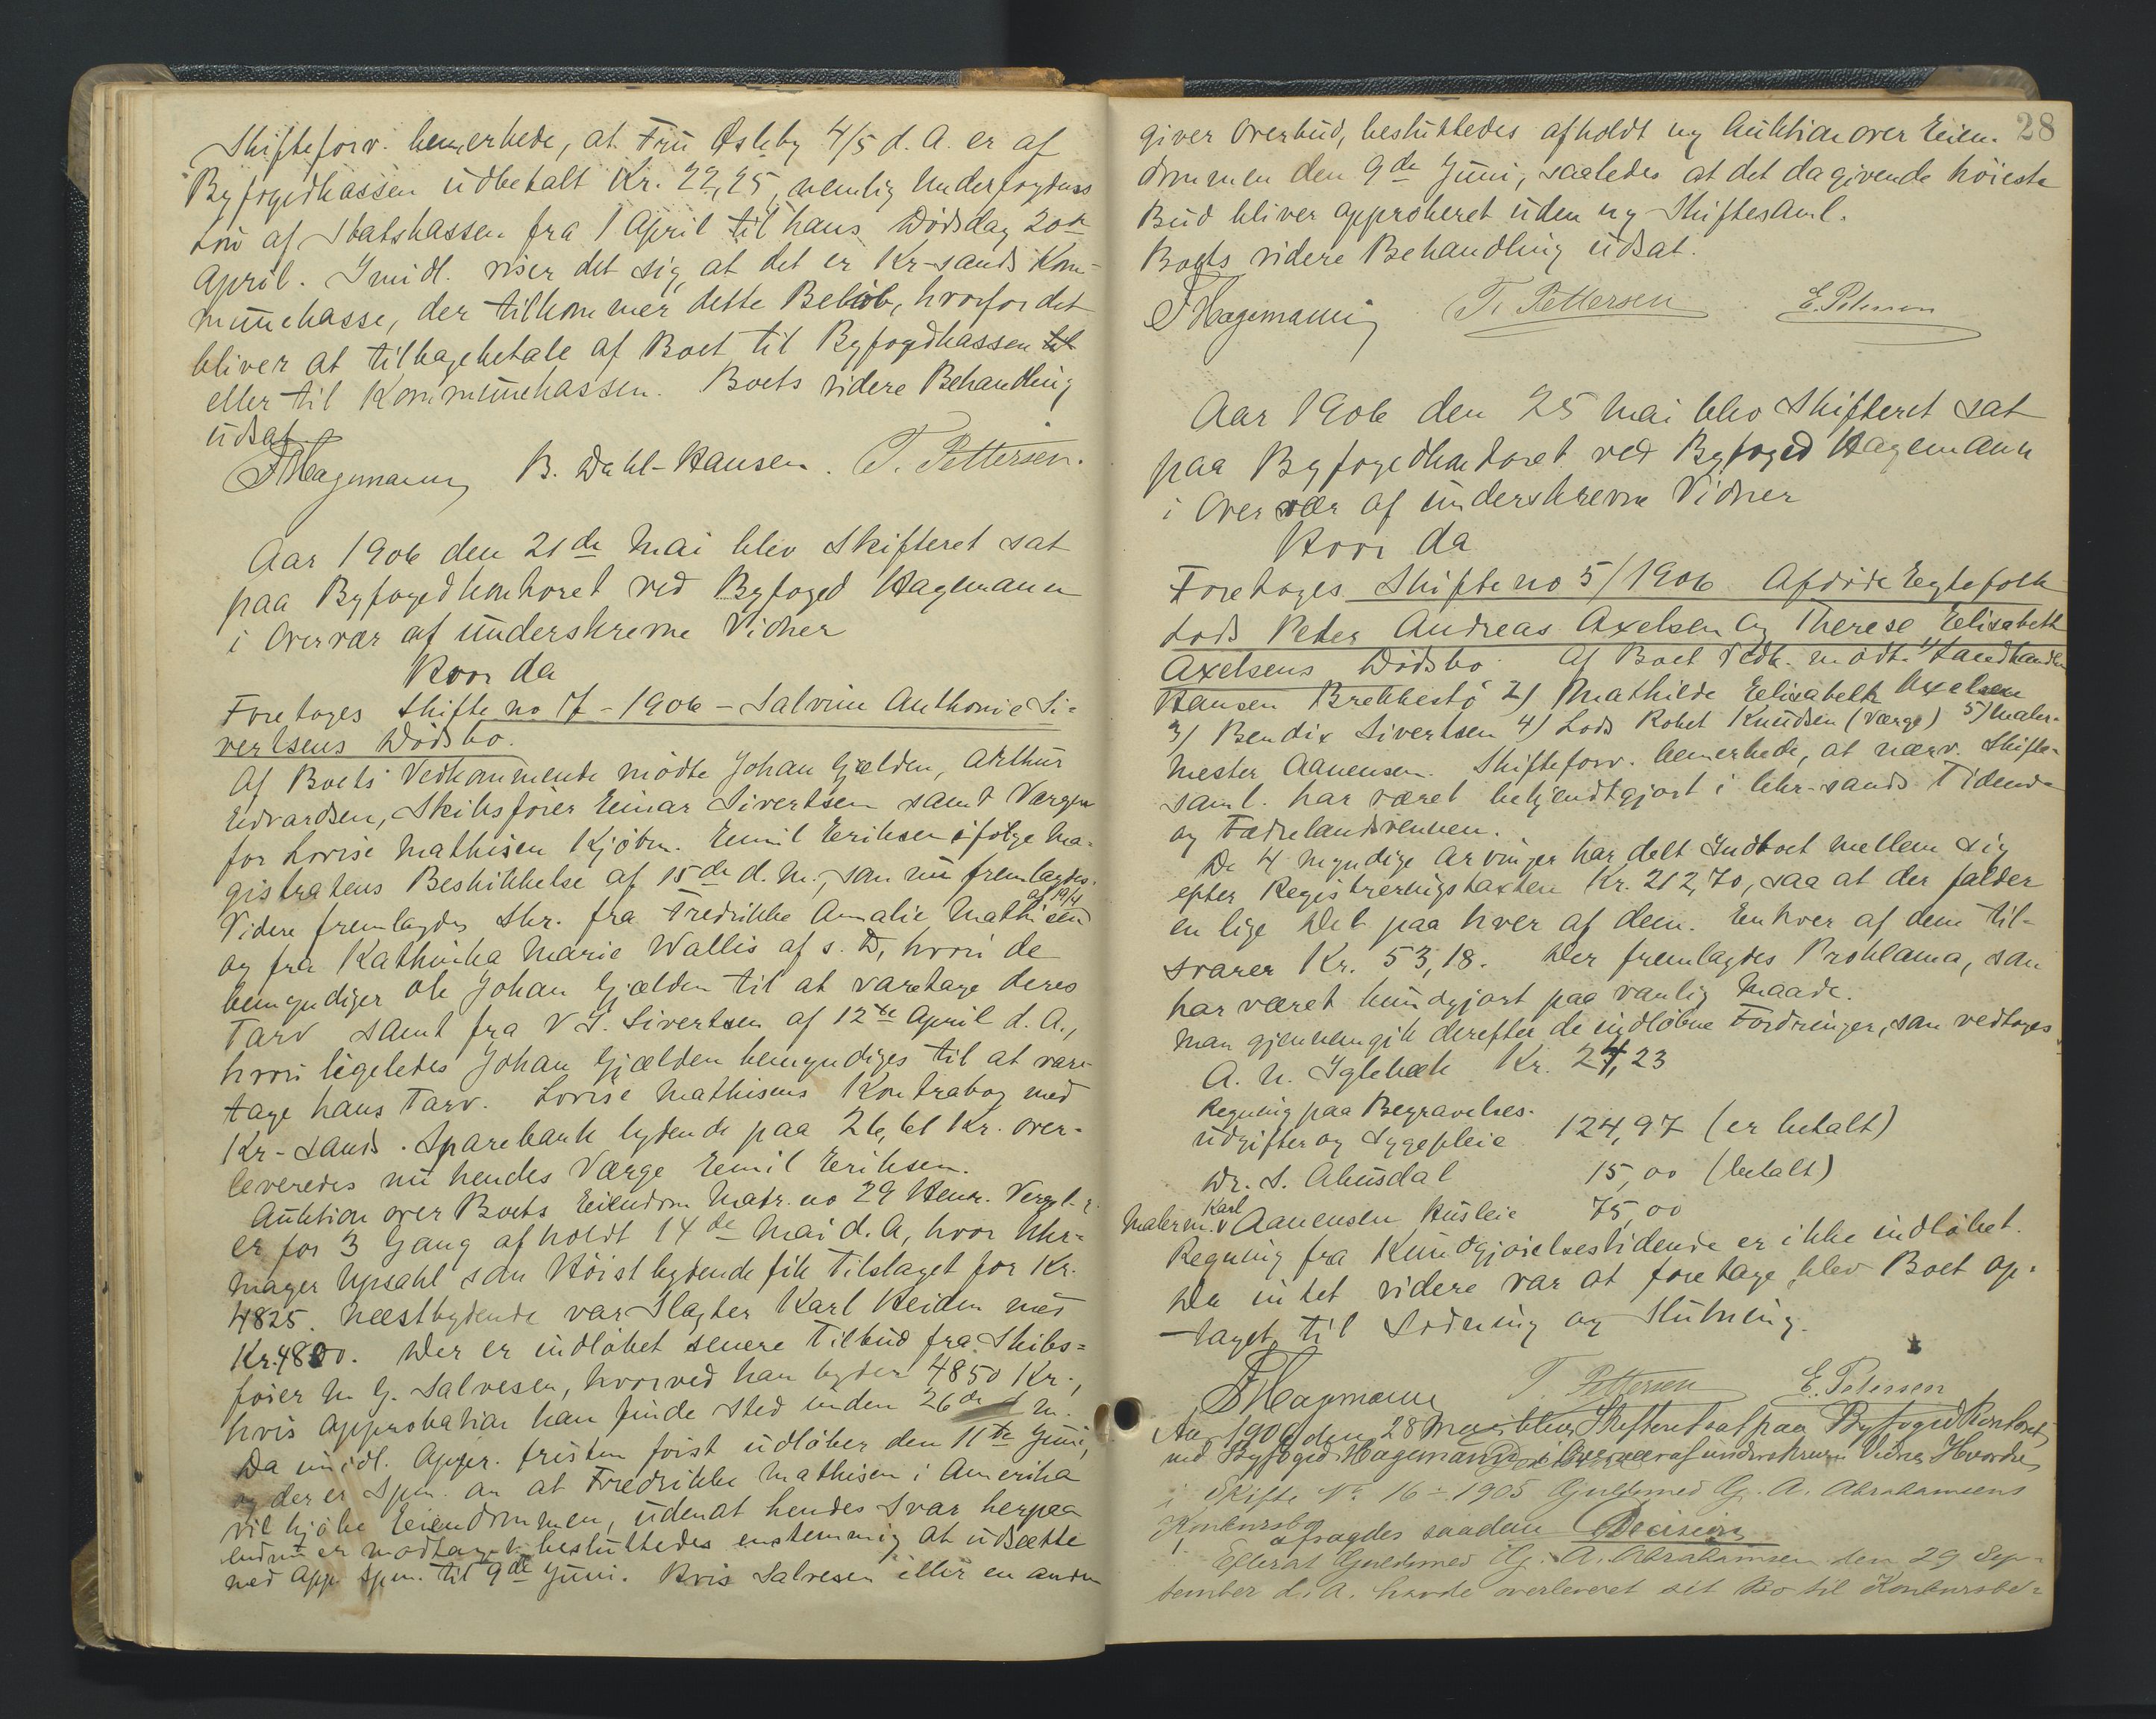 Skifteforv. bemerkede, at Fru Øsleby 4/5 d. A. er af
Byfogedkassen udbetalt Kr. 22,25, nemlig Underfogdens
Løn af Statskassen fra 1 April til hans Dødsdag 20de
April. Imidl. viser det sig, at det er Kr-sands Kom-
munekasse, der tilkommer dette Beløb, hvorfor det
bliver at tilbagebetale af Boet til Byfogdkassen
eller til Kommunekassen. Boets videre Behandling
udsat.
F Hagemann B. Dahl-Hansen. T. Pettersen.
Aar 1906 den 21de Mai blev Skifteret sat
paa Byfogedkontoret ved Byfoged Hagemann
i Overvær af underskrevne Vidner
Hvor da
Foretoges Skifte no 17 - 1906 - Salvine Anthonie Si-
vertsens Dødsbo.
Af Boets Vedkommende mødte Johan Gjælden, Arthur
Edvardsen, Skibsfører Einar Sivertsen samt Værgen
for Lovise Mathisen Kjøbm. Emil Eriksen ifølge Ma-
gistratens Beskikkelse af 15de d. M., som nu fremlagdes.
Videre fremlagdes Skr. fra Fredrikke Amalie Mathisen af 19/4
og fra Kathinka Marie Wallis af s. D, hvori de
bemyndiger Ole Johan Gjælden til at varetage deres
Tarv samt fra V S. Sivertsen af 12te April d. A.,
hvori ligeledes Johan Gjælden bemyndiges til at vare-
tage hans Tarv. Lovise Mathisens Kontrabog med
Kr-sands. Sparebank lydende paa 26,61 Kr. over-
leveredes nu hendes Værge Emil Eriksen.
Auktion over Boets Eiendom Matr. no 29 Henr. Vergel.
er for 3 Gang afholdt 14de Mai d. A, hvor Uhr-
mager Upsahl som Høistbydende fik Tilslaget for Kr.
4825. Næstbydende var Slagter Karl Heiden med
Kr. 4800. Der er indløbet senere Tilbud fra Skibs-
fører M. G. Salvesen, hvorved han byder 4850 Kr.,
hvis Approbation kan finde Sted inden 26de d. M.
Da imidl. Appr. fristen først udløber den 11te Juni,
og der er Spm. om at Fredrikke Mathisen i Amerika
vil kjøbe Eiendommen, uden at hendes Svar herpaa
endnu er modtaget besluttedes enstemmig at udsætte
med App. Spm. til 9de Juni. Hvis Salvesen eller en anden
28
giver Overbud, besluttedes afholdt ny Auktion over Eien-
dommen den 9de Juni, saaledes at det da givende høieste
Bud bliver approberet uden ny Skiftesaml.
Boets videre Behandling udsat.
F Hagemann T. Pettersen E. Petersen
Aar 1906 den 25 Mai blev Skifteret sat
paa Byfogedkontoret ved Byfoged Hagemann
i Overvær af underskrevne Vidner
Hvor da
Foretoges Skifte no 5/1906 Afdøde Egtefolk
Lods Peder Andreas Axelsen og Therese Elisabeth
Axelsens Dødsbo. Af Boet Vedk. mødte 1) Landhandler
Hansen Brekkestø 2) Mathilde Elisabeth Axelsen
3) Bendix Sivertsen 4) Lods Robet Knudsen (Værge) 5) Maler-
mester Aanensen. Skifteforv. bemerkede, at nærv. Skifte-
saml. har været bekjendtgjort i Chr.-sands Tidende
og Fædrelandsvennen.
De 4 myndige Arvinger har delt Indboet mellem sig
efter Registreringstaxten Kr. 212,70, saa at der falder
en lige Del paa hver af dem. Enhver af dem til-
svarer Kr. 53,18. Der fremlagdes Proklama, som
har været kundgjort paa vanlig Maade.
Man gjennemgik derefter de indløbne Fordringer, som vedtoges
A. N. Iglebæk Kr. 24,23
Regning paa Begravelses-
udgifter og Sygepleie 124,97 (er betalt)
Dr. S. Abusdal 15,00 (betalt)
Malerm. Karl Aanensen Husleie 75,00
Regning fra Kundgjørelsestidende er ikke indløbet.
Da intet videre var at foretage blev Boet op-
taget til Lodning og Slutning.
F Hagemann T. Pettersen E. Petersen
Aar 1906 den 28 Mai blev Skifteret sat paa Byfoged Kontoret
ved Byfoged Hagemann i Overvær af underskrevne Vidner Hvorda
i Skifte No. 16 - 1905 Guldsmed G. A. Abrahamsens
Konkursbo afsagdes saadan Decision
Efterat Guldsmed G. A. Abrahamsen den 29 Sep-
tember d. A. havde overleveret sit Bo til Konkursbe-